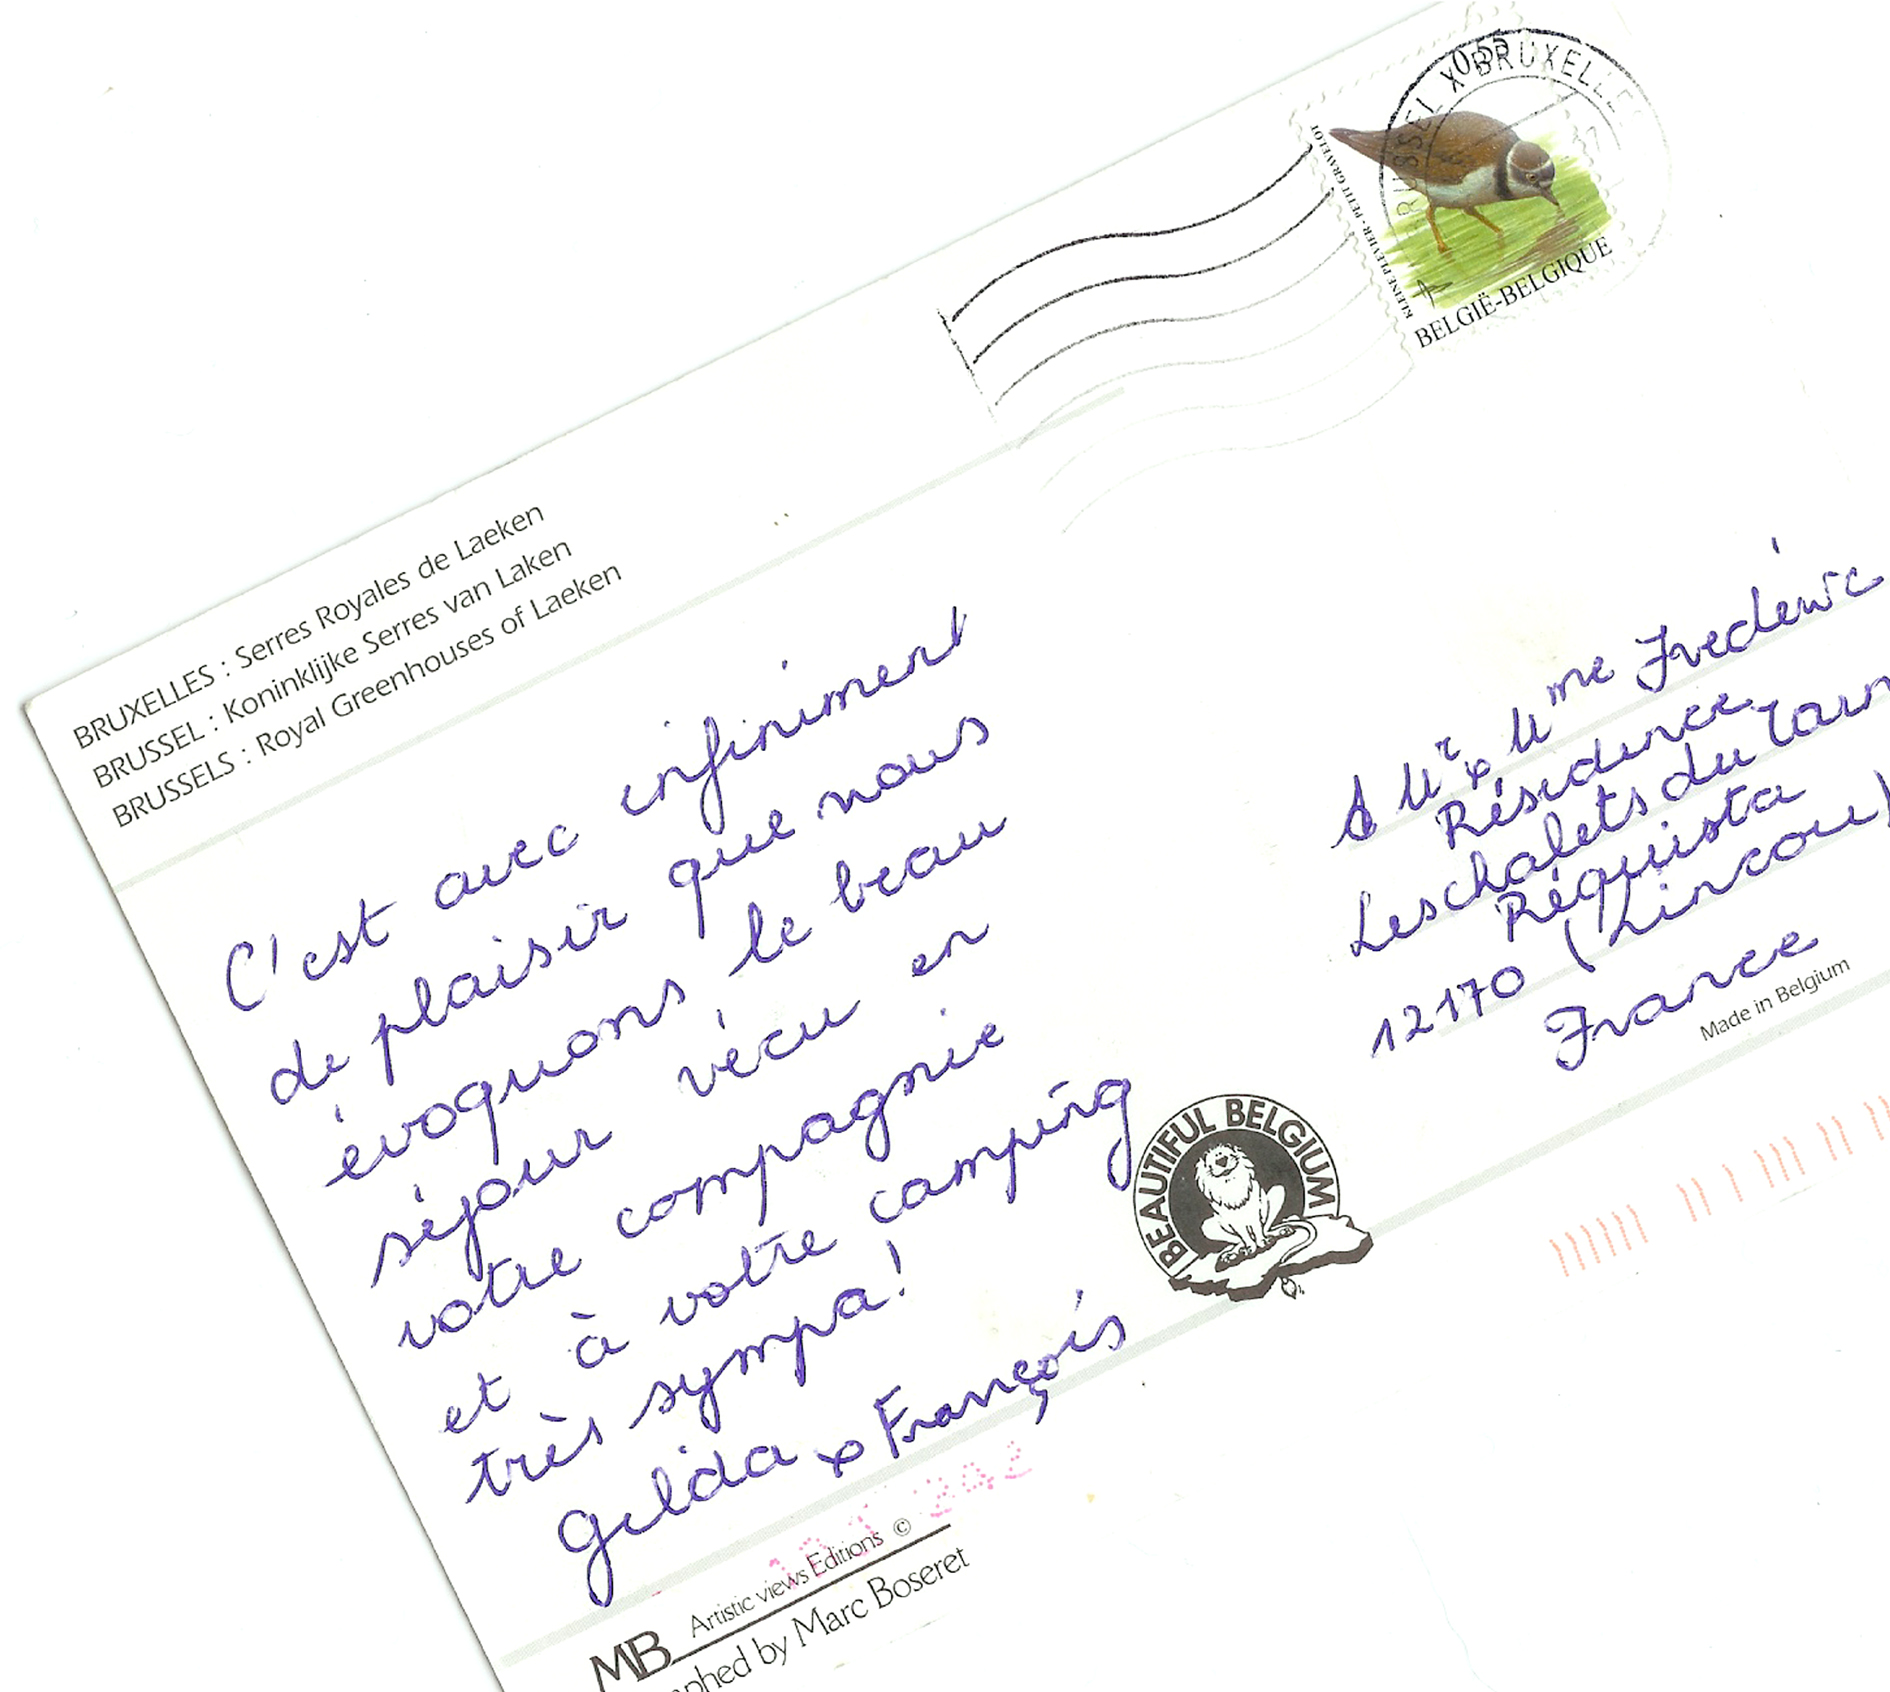 BRUXELLES : Serres Royales de Laeken
BRUSSEL : Koninklijke Serres van Laken
BRUSSELS : Royal Greenhouses of Laeken
0,55
BRUSSEL X BRUXELLES
KLEINE PLEVIER - PETIT GRAVELOT
BELGIË-BELGIQUE
C'est avec infiniment
de plaisir que nous
évoquons le beau
séjour vécu en
votre compagnie
et à votre camping
très sympa!
Gelda & François
à Mr & Mme Frédéric
Résidence
Les chalets du Tarn
Réquista
12170 (Lincou)
France
Made in Belgium
BEAUTIFUL BELGIUM
MB Artistic views Editions ©
phed by Marc Boseret